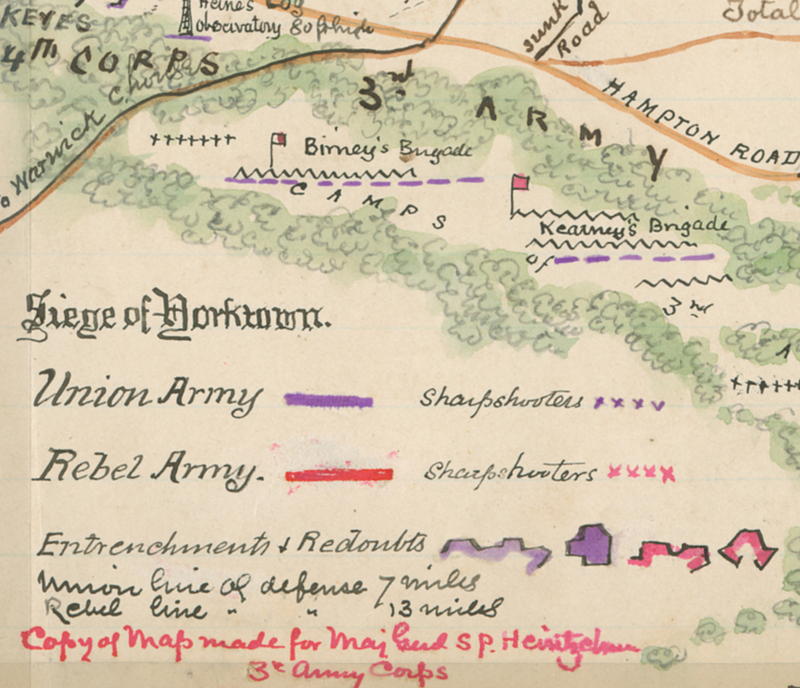 KEYES
Heine's Log
Observatory 80 ft high
4th CORPS
Church
to Warwick
sunk
Road
Total
3rd ARMY
HAMPTON ROAD
Birney's Brigade
CAMPS
Kearney's Brigade
of
3rd
A
Siege of Yorktown.
Union Army
Sharpshooters
Rebel Army.
Sharpshooters
Entrenchments & Redoubts
Union line of defense 7 miles
Rebel line " " 13 miles
Copy of Map made for Maj Genl S P. Heintzelman
3d Army Corps